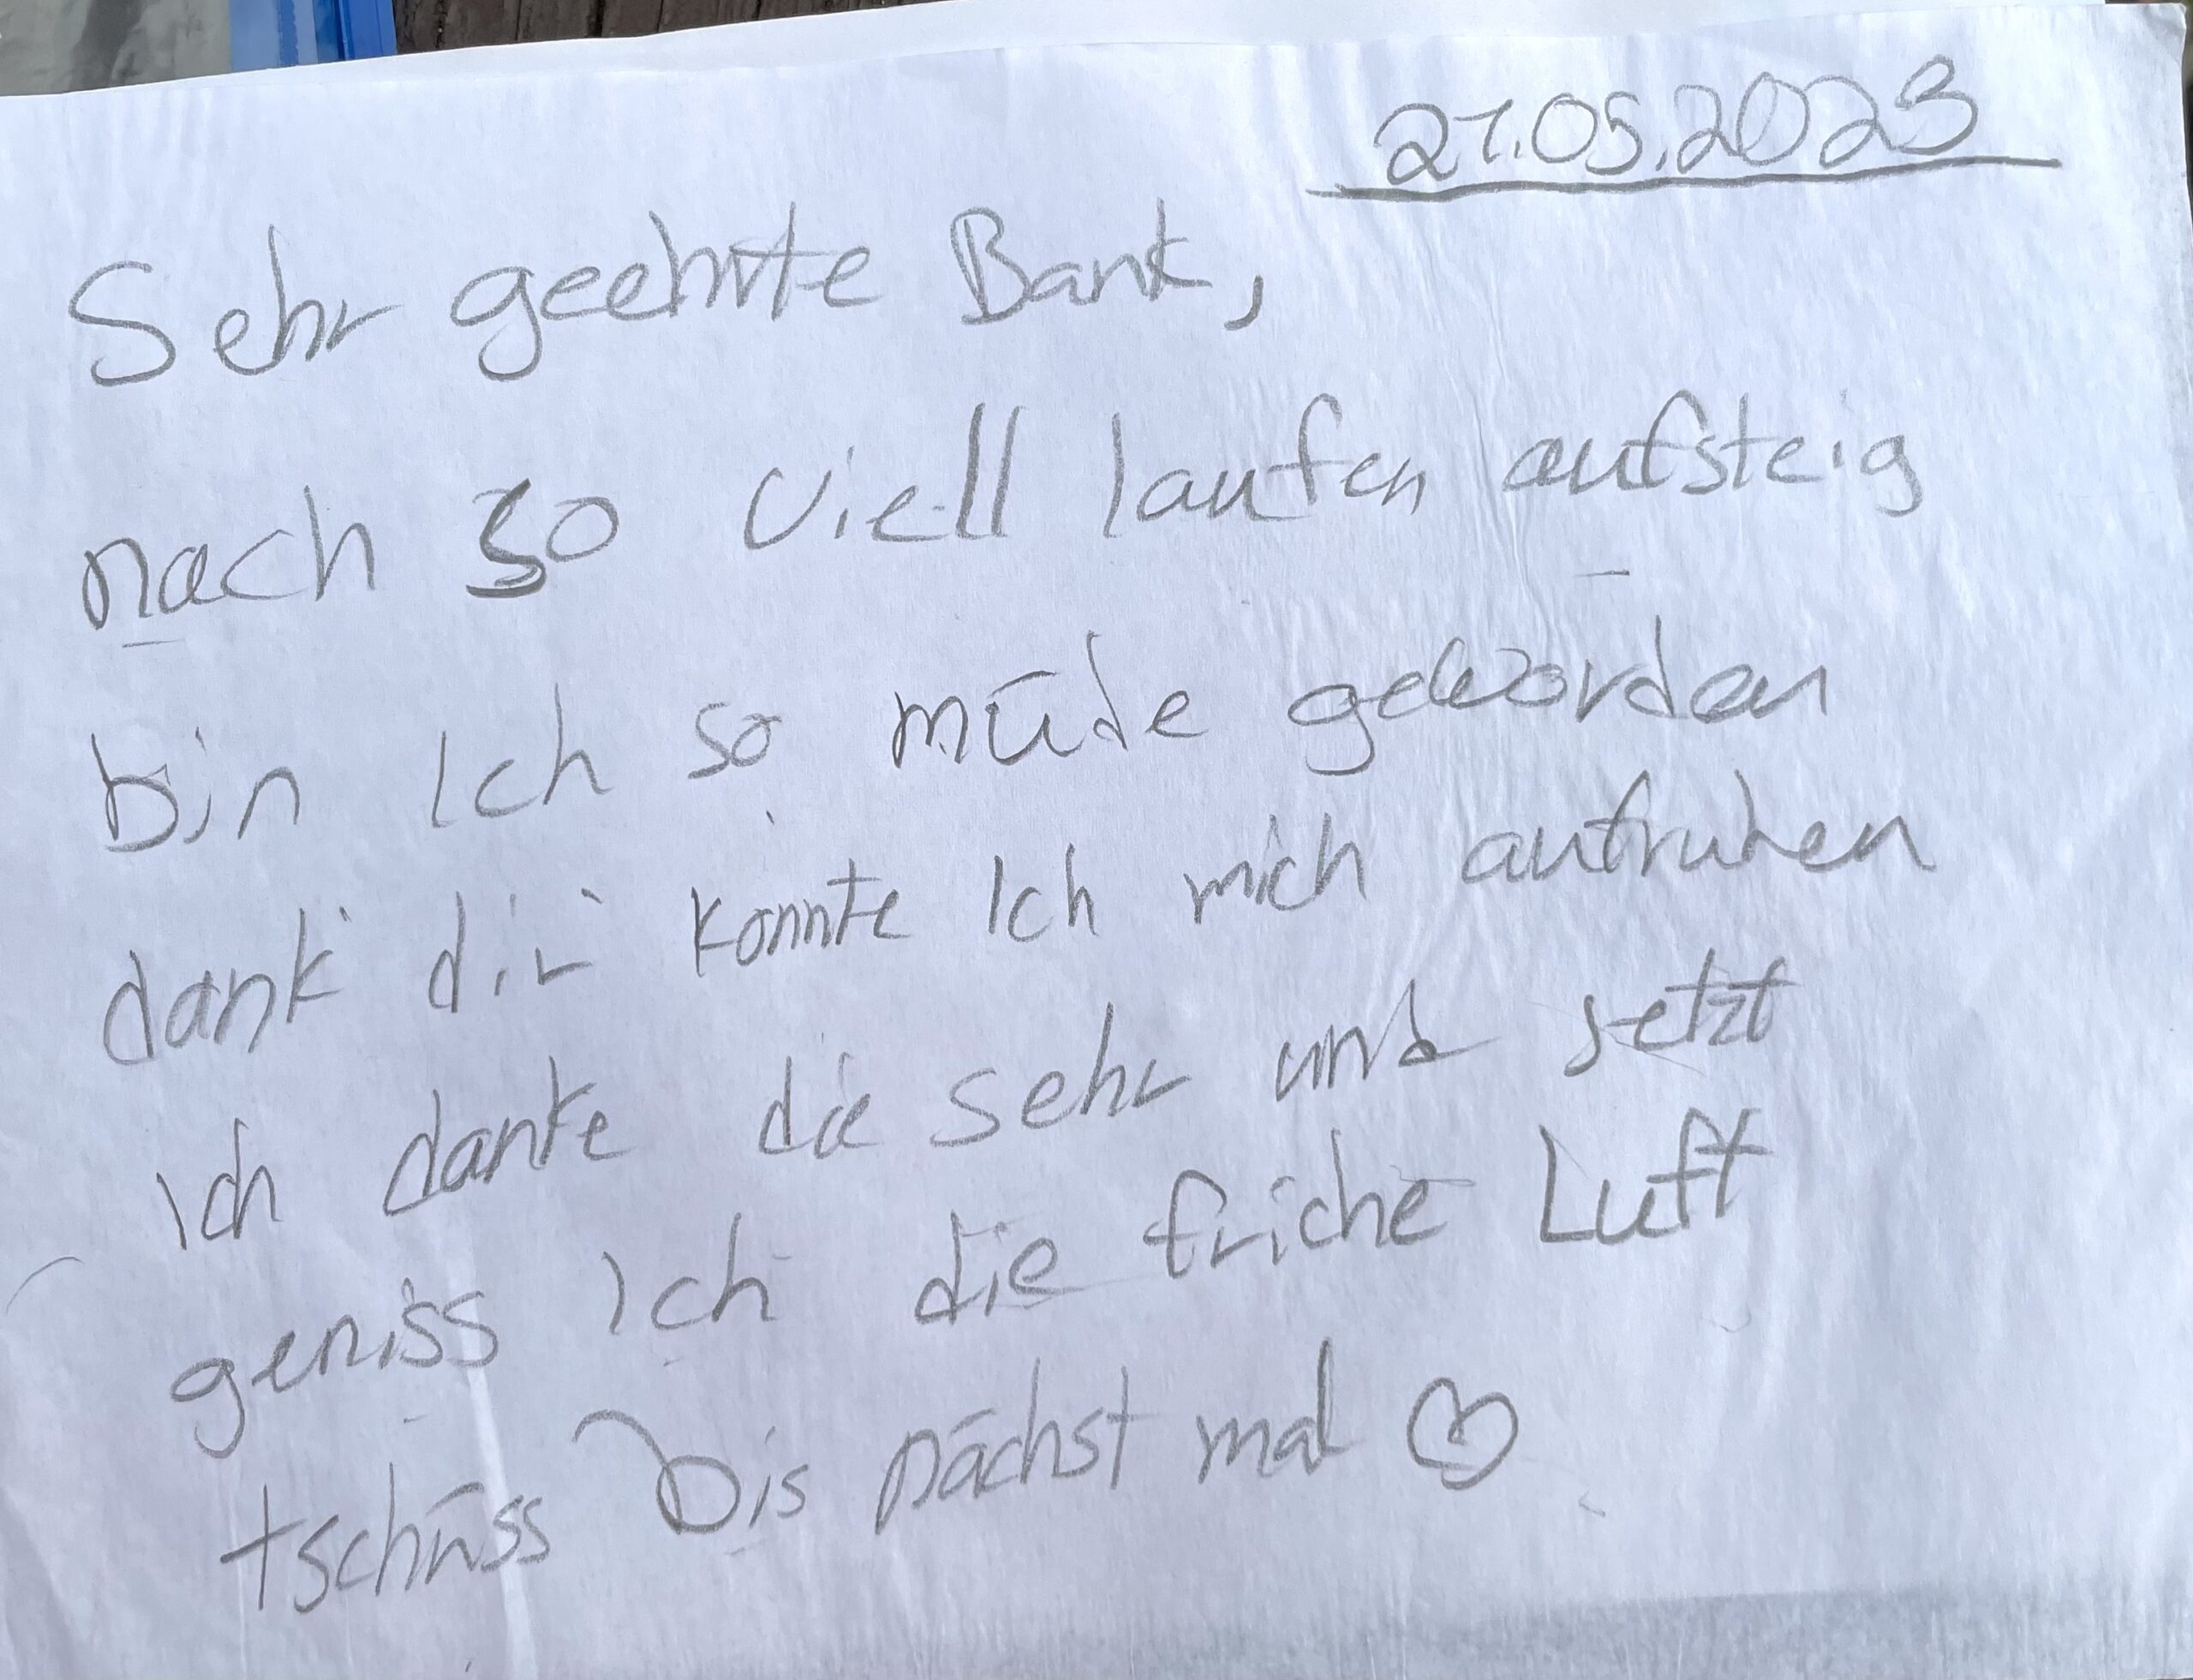 21.05.2023
Sehr geehrte Bank,
nach so viell laufen aufsteig
bin Ich so müde geworden
dank dir konnte Ich mich aufruhen
ich danke die sehr und jetzt
geniss ich die friche Luft
tschüss bis nächst mal ♡